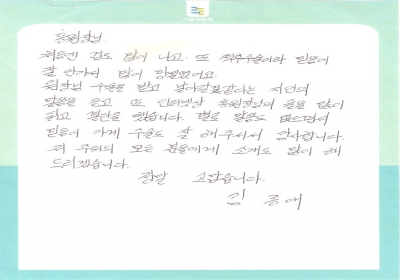 홍원장님.
처음엔 겁도 많이 나고. 또 척추수술이라 믿음이
잘 안가서 많이 망설였어요.
원장님 수술을 받고 날아갈것같다는 지인의
말씀을 듣고 또 인터넷상 홍원장님의 글을 많이
읽고 결단을 했습니다. 별로 말씀도 없으면서
믿음이 가게 수술도 잘 해주셔서 감사합니다.
제 주위의 모든 분들에게 소개도 많이 해
드리겠습니다.
정말 고맙습니다.
김 종 애